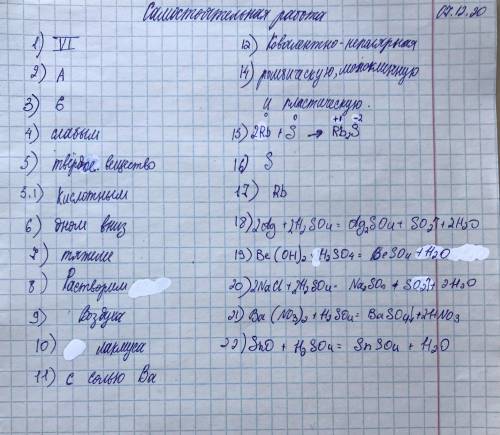 Самостоятельная работа 07.12.20
1) VI
2) А
3) 6
4) слабым
5) твёрдое вещество
5.1) кислотным
6) дном вниз
7) тяжелее
8) Растворим
9) воздуха
10) лакмуса
11) с солью Ba
12) Ковалентно-неполярная
14) ромбическую, моноклинную
и пластическую.
15) 2Rb⁰ + S⁰ → Rb₂⁺¹S⁻²
16) S
17) Rb
18) 2Ag + 2H₂SO₄ = Ag₂SO₄ + SO₂↑ + 2H₂O
19) Be(OH)₂ + H₂SO₄ = BeSO₄ + H₂O
20) 2NaCl + 2H₂SO₄ = Na₂SO₄ + SO₂↑ + 2H₂O
21) Ba(NO₃)₂ + H₂SO₄ = BaSO₄↓ + 2HNO₃
22) SnO + H₂SO₄ = SnSO₄ + H₂O